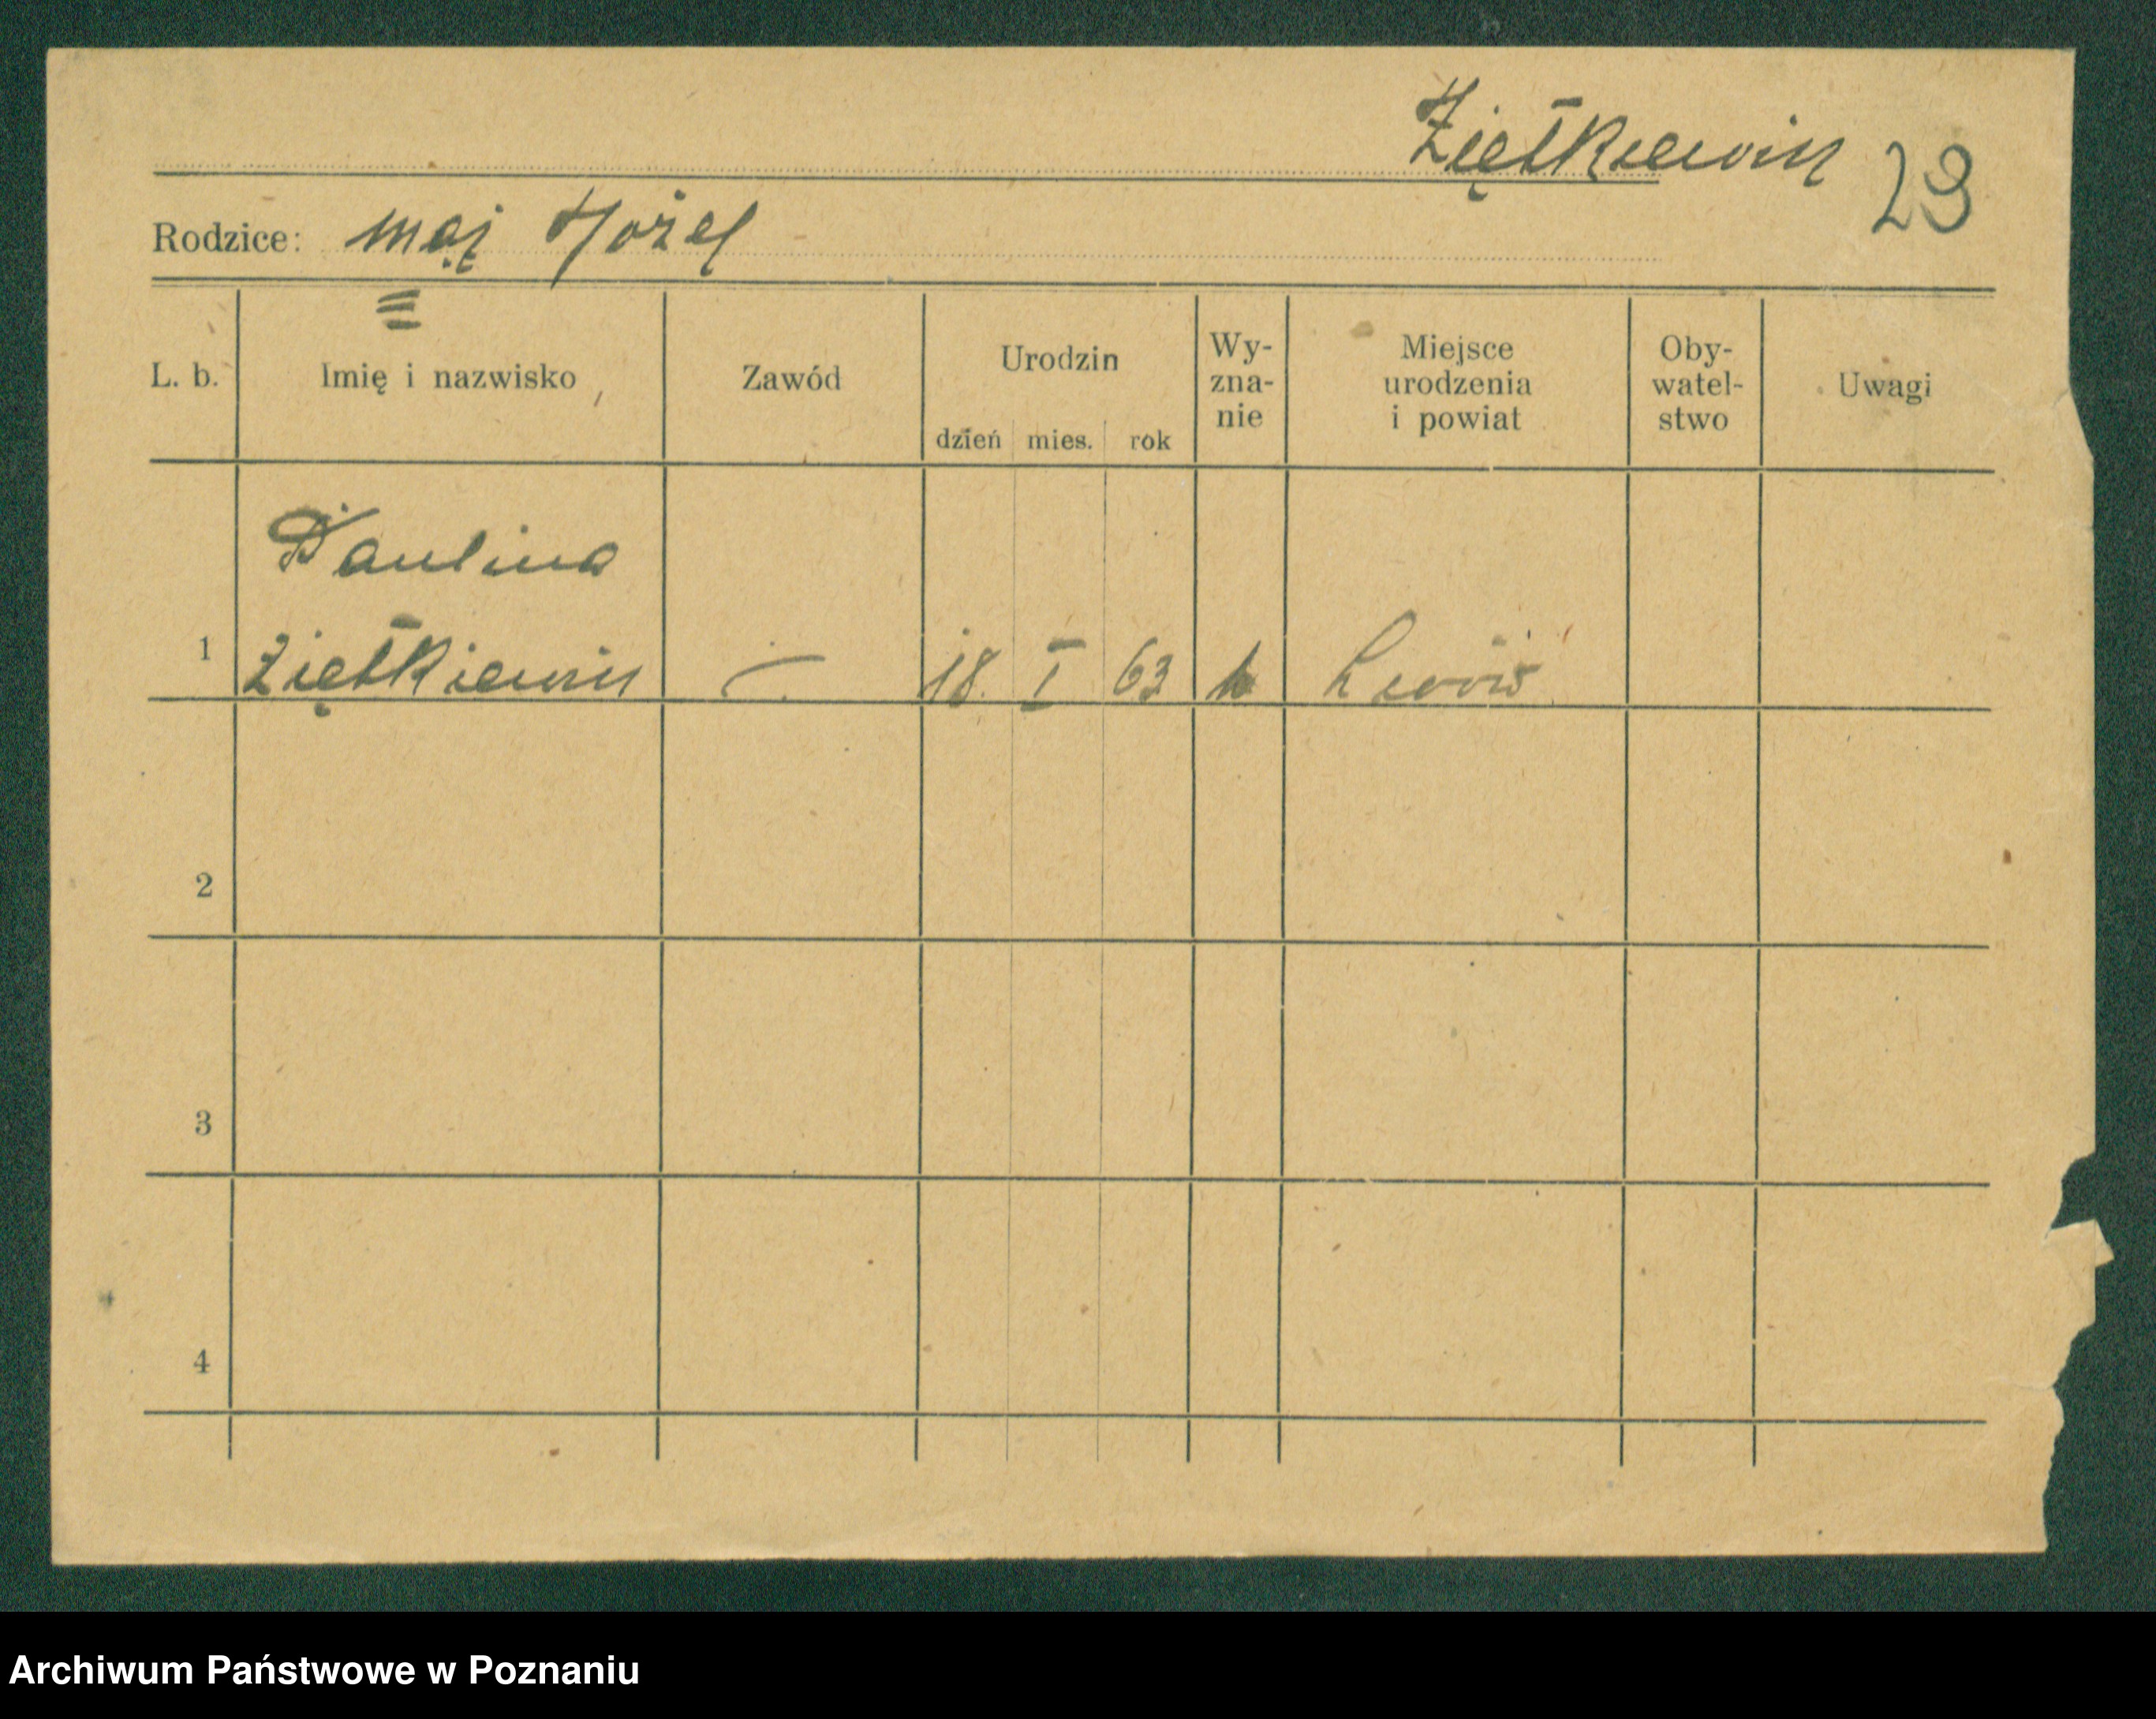 Ziętkiewicz 29
Rodzice: mąż Józef
L. b. Imię i nazwisko Zawód Urodzin dzień mies. rok Wy-zna-nie Miejsce urodzenia i powiat Oby-watel-stwo Uwagi
Paulina
1 Ziętkiewicz — 18. I 63 Lwów
2
3
4
Archiwum Państwowe w Poznaniu